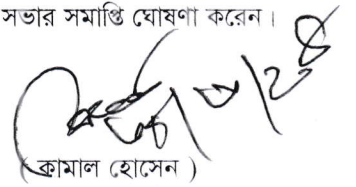 সভার সমাপ্তি ঘোষণা করেন।
( কামাল হোসেন )